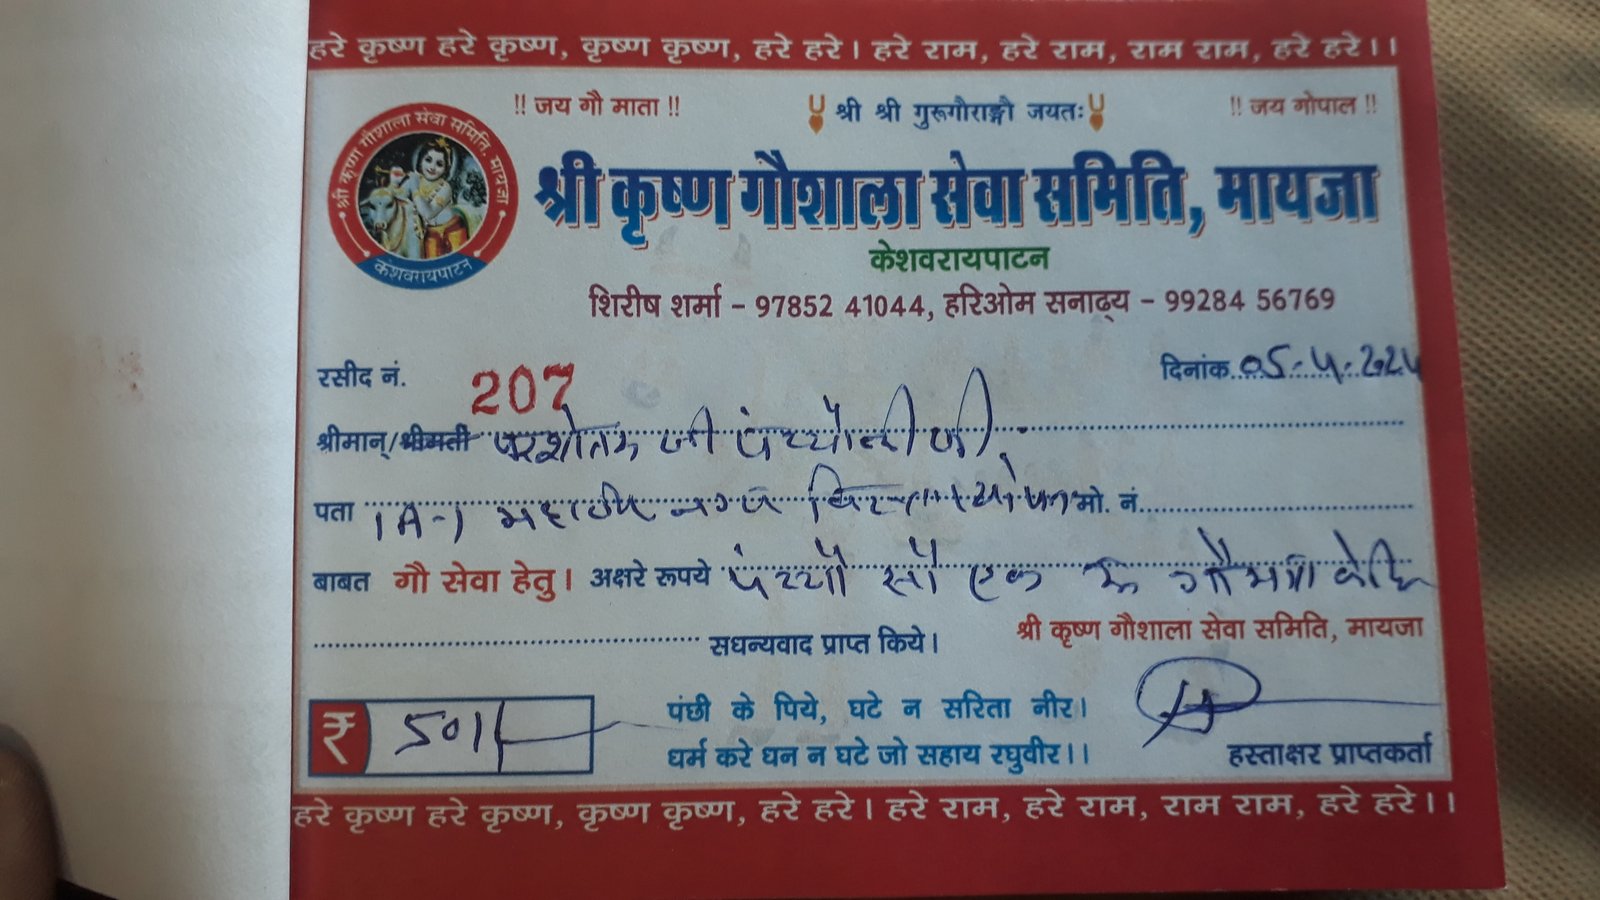 हरे कृष्ण हरे कृष्ण, कृष्ण कृष्ण, हरे हरे। हरे राम, हरे राम, राम राम, हरे हरे।।
!! जय गौ माता !! श्री श्री गुरूगौराङ्गौ जयतः !! जय गोपाल !!
श्री कृष्ण गौशाला सेवा समिति, मायजा
केशवरायपाटन
श्री कृष्ण गौशाला सेवा समिति, मायजा
केशवरायपाटन
शिरीष शर्मा - 97852 41044, हरिओम सनाढ्य - 99284 56769
रसीद नं. 207 दिनांक 05-4-2024
श्रीमान्/श्रीमती जी जी
पता 1A-1 मो. नं.
बाबत गौ सेवा हेतु। अक्षरे रूपये पंच्यौ सौ एक
सधन्यवाद प्राप्त किये। श्री कृष्ण गौशाला सेवा समिति, मायजा
₹ 501/-
पंछी के पिये, घटे न सरिता नीर।
धर्म करे धन न घटे जो सहाय रघुवीर।।
हस्ताक्षर प्राप्तकर्ता
हरे कृष्ण हरे कृष्ण, कृष्ण कृष्ण, हरे हरे। हरे राम, हरे राम, राम राम, हरे हरे।।